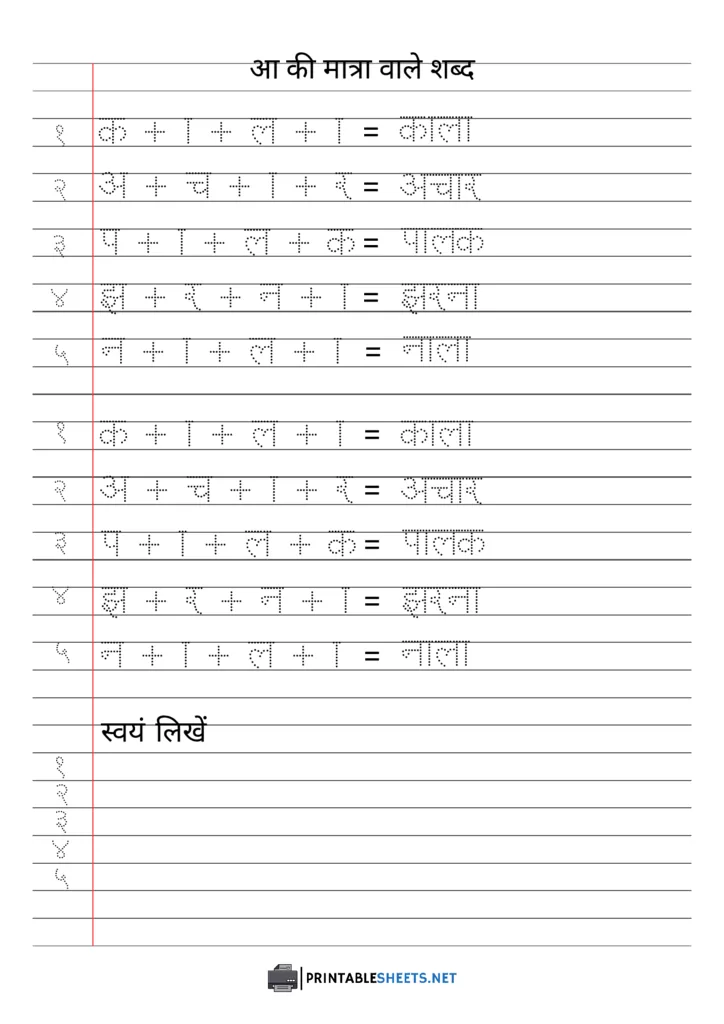 आ की मात्रा वाले शब्द
१ क + ा + ल + ा = काला
२ अ + च + ा + र = अचार
३ प + ा + ल + क = पालक
४ झ + र + न + ा = झरना
५ न + ा + ल + ा = नाला
१ क + ा + ल + ा = काला
२ अ + च + ा + र = अचार
३ प + ा + ल + क = पालक
४ झ + र + न + ा = झरना
५ न + ा + ल + ा = नाला
स्वयं लिखें
१
२
३
४
५
PRINTABLESHEETS.NET